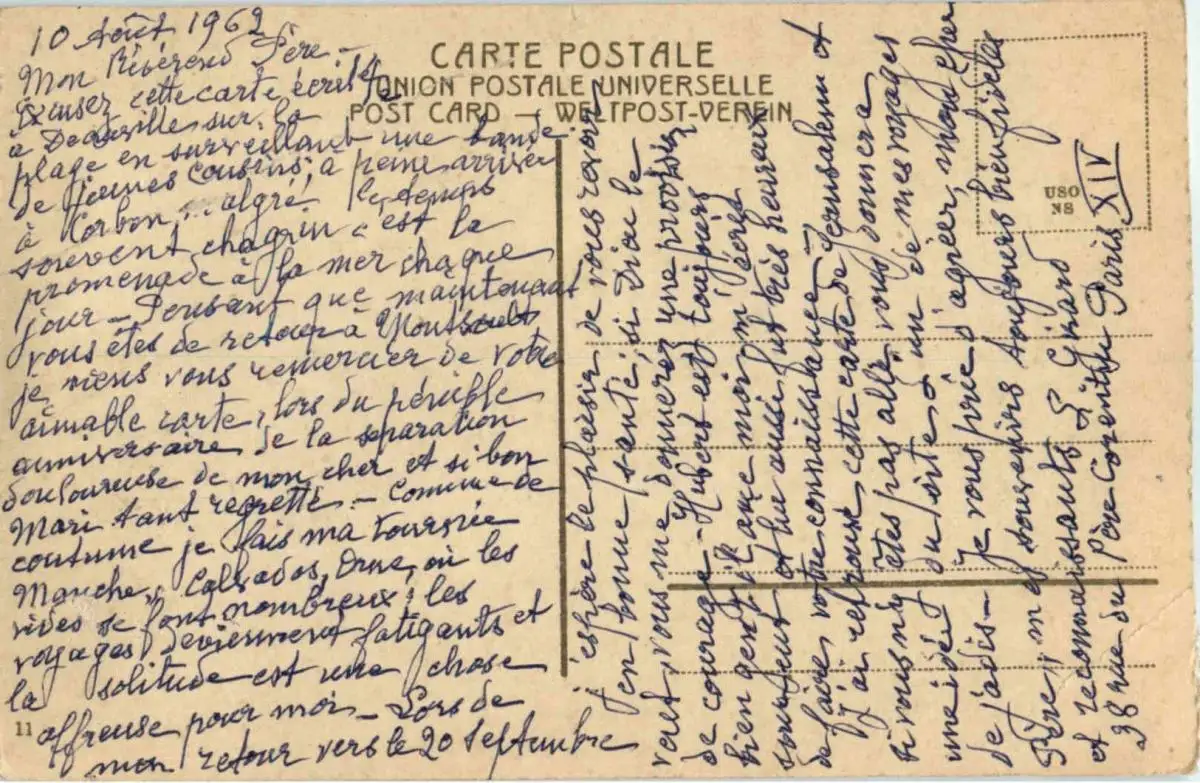 10 Août 1962
Mon Révérend Père –
Excusez cette carte écrite
à Deauville sur la
plage en surveillant une bande
de Jeunes cousins, à peine arrivée
à Corbon.. algré le temps
souvent chagrin c'est la
promenade à la mer chaque
jour – Pensant que maintenant
vous êtes de retour à
je viens vous remercier de votre
aimable carte, lors du pénible
anniversaire de la separation
douloureuse de mon cher et si bon
Mari tant regretté. – Comme de
coutume je fais ma tournée
Manche, Calvados, Orne, où les
vides se font nombreux; les
voyages deviennent fatigants et
la solitude est une chose
affreuse pour moi – Lors de
mon retour vers le 20 Septembre
CARTE POSTALE
UNION POSTALE UNIVERSELLE
POST CARD – WELTPOST-VEREIN
USO
NS
11
j'espère le plaisir de vous revoir
en bonne santé, si Dieu le
veut, vous me donnerez une provision
de courage – Hubert est toujours
bien gentil avec moi, m'écrit
souvent et lui aussi fut très heureux
de faire votre connaissance –
J'ai retrouvé cette carte de Jérusalem et
si vous n'y êtes pas allé vous donnera
une idée du site d'un de mes voyages
de jadis – Je vous prie d'agréer, mon cher
Père, mes souvenirs toujours bien fidèles
et reconnaissants Girard
28 rue du Père Corentin Paris XIV